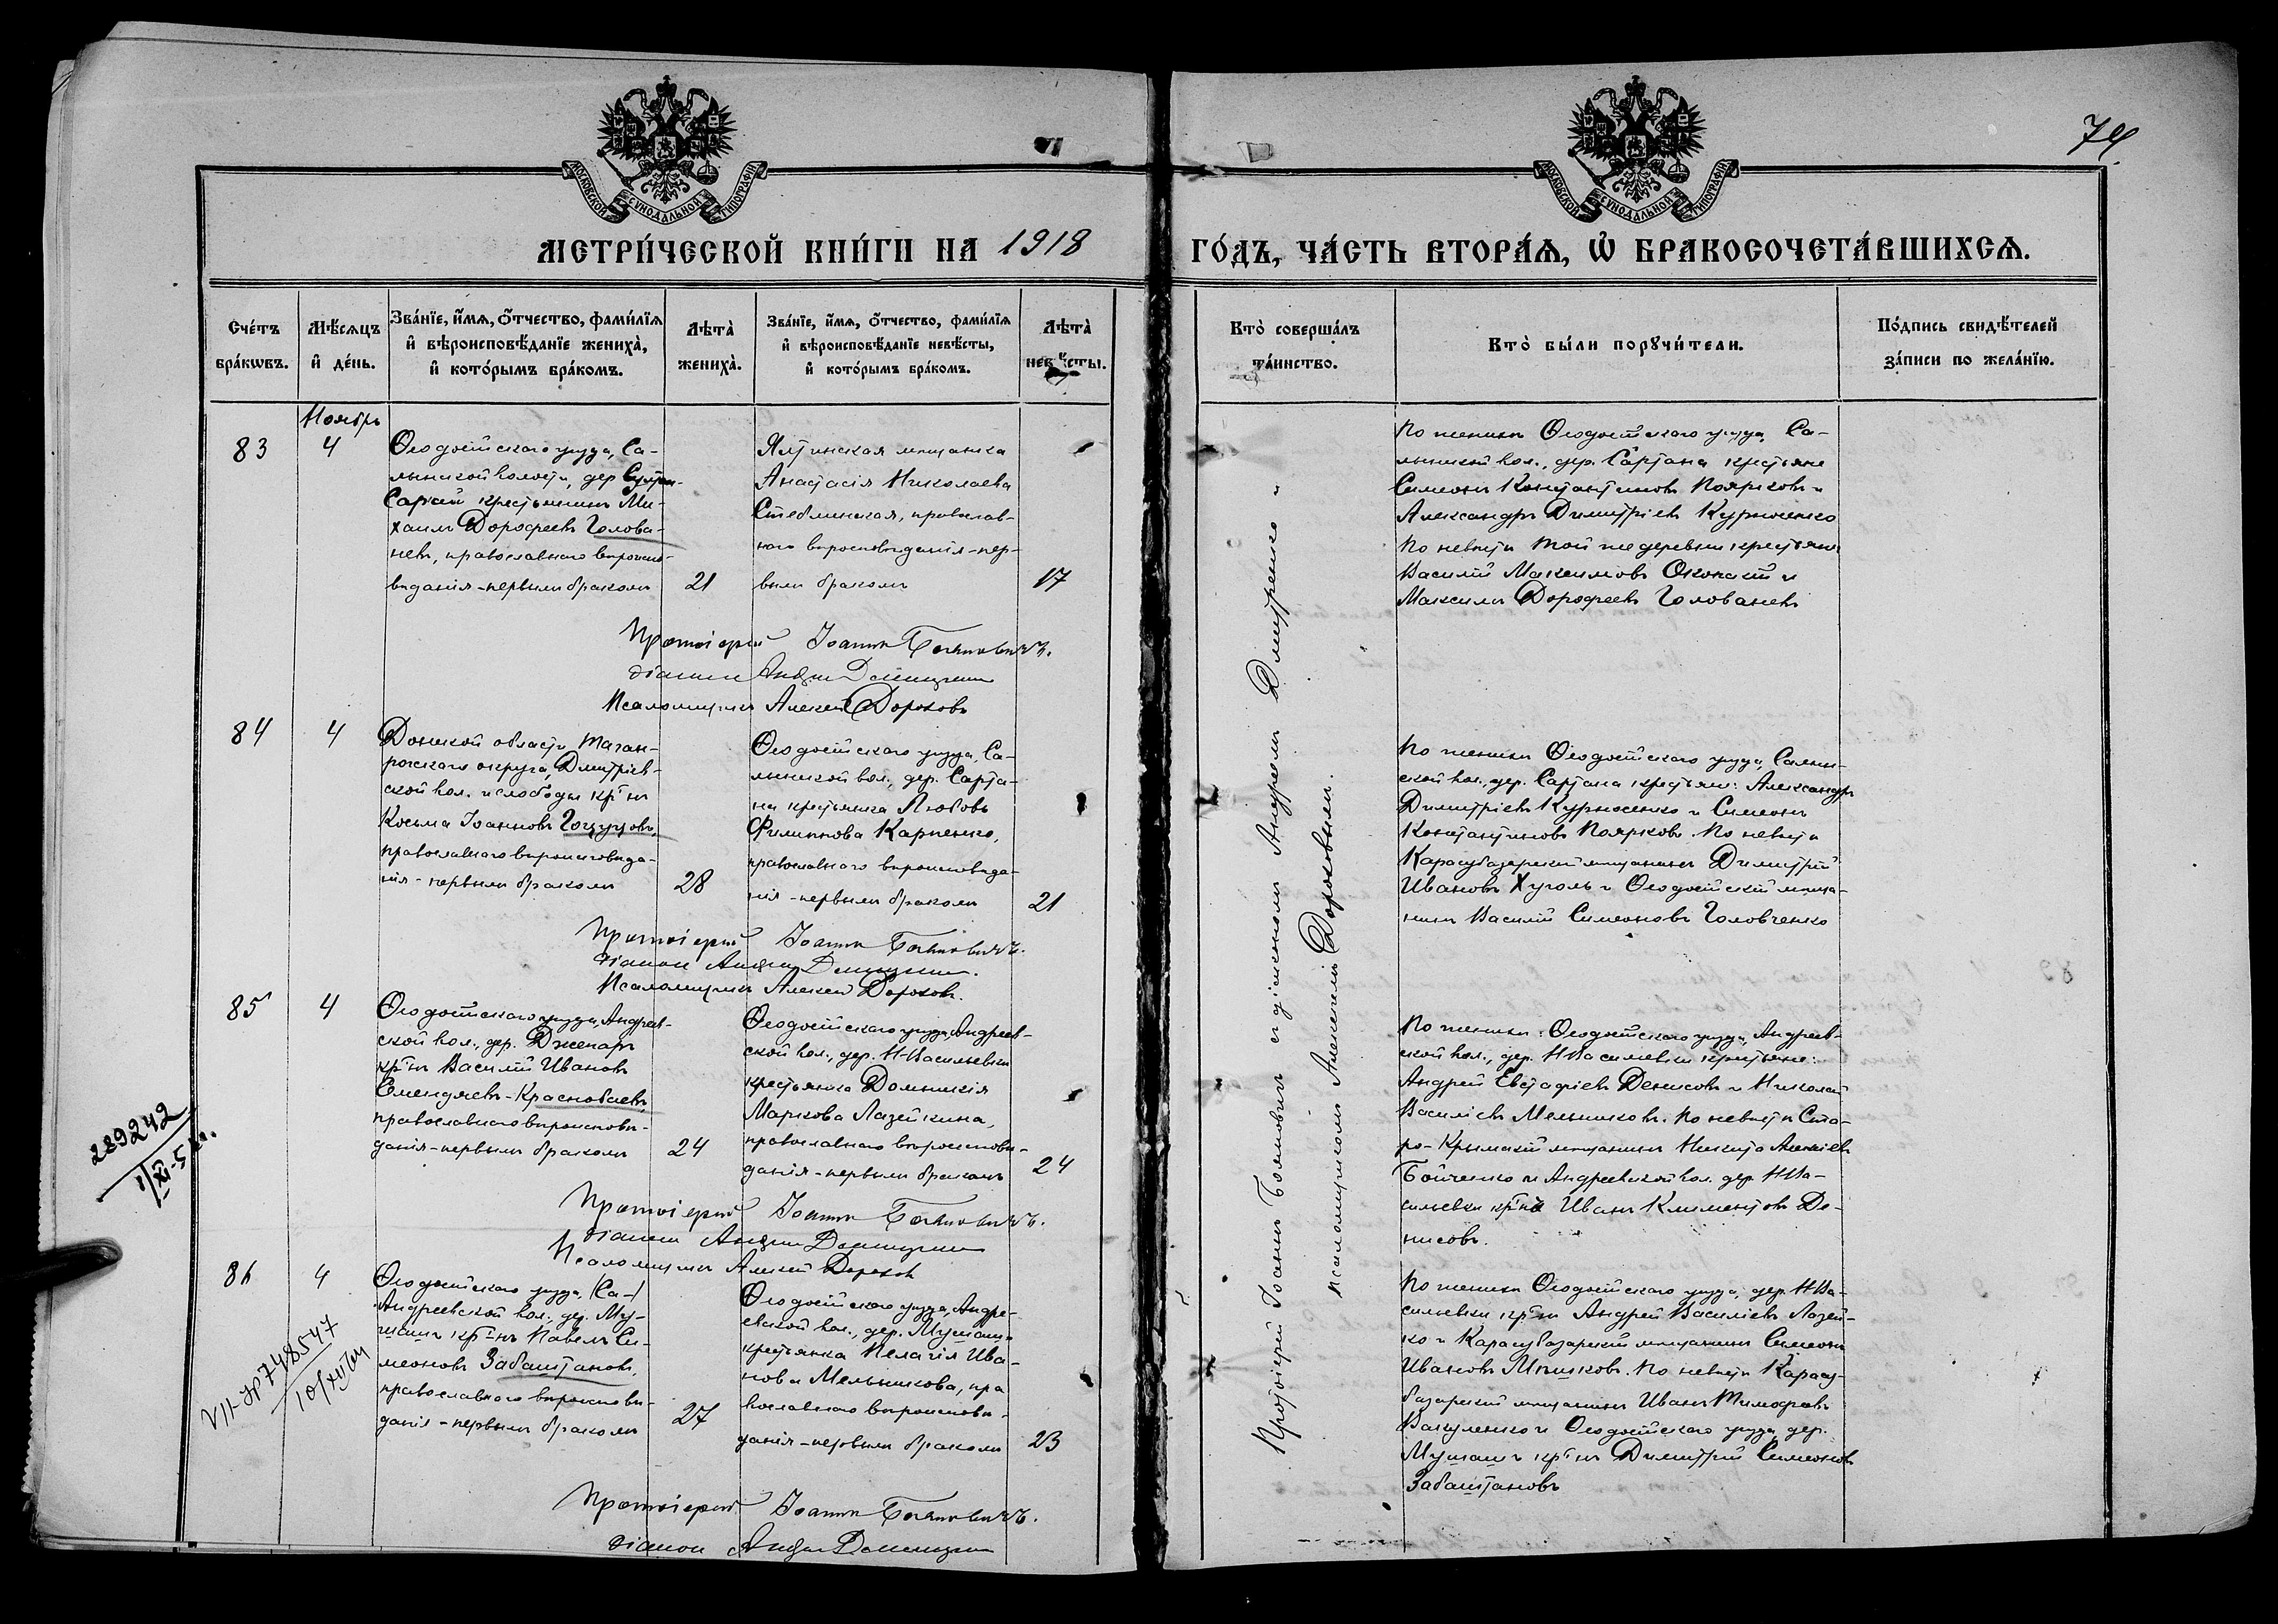 74
МОСКОВСКОЙ СѴНОДАЛЬНОЙ ТИПОГРАФІИ
МОСКОВСКОЙ СѴНОДАЛЬНОЙ ТИПОГРАФІИ
МЕТРИ́ЧЕСКОЙ КНИ́ГИ НА 1918 ГО́ДЪ, ЧА́СТЬ ВТОРА́Ѧ, Ѡ҆ БРАКОСОЧЕТА́ВШИХСѦ.
Сче́тъ бра́кѡвъ.
Мѣ́сѧцъ и҆ де́нь.
Зва́нїе, и҆́мѧ, ѻ҆́тчество, фами́лїѧ
и҆ вѣроисповѣ́данїе жениха̀,
и҆ кото́рымъ бра́комъ.
Лѣта̀ жениха̀.
Зва́нїе, и҆́мѧ, ѻ҆́тчество, фами́лїѧ
и҆ вѣроисповѣ́данїе невѣ́сты,
и҆ кото́рымъ бра́комъ.
Лѣта̀ невѣ́сты.
Кто̀ соверша́лъ та́инство.
Кто̀ бы́ли порꙋчи́тели.
По́дпись свидѣ́телей за́писи по жела́нїю.
Ноябрь
83
4
Ѳеодосійскаго уѣзда, Са-
лынской волости, дер.
Сарай крестьянинъ Ми-
хаилъ Дорофеевъ Голова-
невъ, православнаго вѣроиспо-
вѣданія - первымъ бракомъ
21
Ялтинская мѣщанка
Анастасія Николаева
Стеблинская, православ-
наго вѣроисповѣданія - пер-
вымъ бракомъ
17
По женихѣ Ѳеодосійскаго уѣзда, Са-
лынской вол., дер. Сартана крестьяне
Симеонъ Константиновъ Поярковъ и
Александръ Димитріевъ Курносенко
По невѣстѣ той же деревни крестьяне
Василій Максимовъ и
Максимъ Дорофеевъ Голованевъ
Протоіерей Іоаннъ
діаконъ Андрей
Псаломщикъ Алексей Дороховъ
84
4
Донской области, Таган-
рогскаго округа, Дмитріев-
ской вол. и слободы кр-нъ
Косьма Іоанновъ
православнаго вѣроисповѣда-
нія - первымъ бракомъ
28
Ѳеодосійскаго уѣзда, Са-
лынской вол., дер. Сарта-
на крестьянка Любовь
Филиппова Карпенко,
православнаго вѣроисповѣда-
нія - первымъ бракомъ
21
По женихѣ Ѳеодосійскаго уѣзда, Салын-
ской вол., дер. Сартана крестьяне: Александръ
Димитріевъ Курносенко и Симеонъ
Константиновъ Поярковъ. По невѣстѣ
Карасубазарскій мѣщанинъ Димитрій
Ивановъ и Ѳеодосійскій мѣща-
нинъ Василій Симеоновъ Головченко
Протоіерей Іоаннъ
діаконъ Андрей
Псаломщикъ Алексей Дороховъ.
85
4
Ѳеодосійскаго уѣзда, Андреев-
ской вол., дер.
кр-нъ Василій Ивановъ
Емендяевъ-Краснобаевъ,
православнаго вѣроисповѣ-
данія - первымъ бракомъ
24
Ѳеодосійскаго уѣзда, Андреев-
ской вол., дер. Н-Васильевки
крестьянка Домникія
Маркова Лазейкина,
православнаго вѣроисповѣ-
данія - первымъ бракомъ
24
По женихѣ: Ѳеодосійскаго уѣзда, Андреев-
ской вол., дер. Н Васильевки крестьяне:
Андрей Евстафіевъ Денисовъ и Николай
Василіевъ Мельниковъ. По невѣстѣ Ста-
ро-Крымскій мѣщанинъ Никита Алексіевъ
Бойченко и Андреевской вол. дер. Н Ва-
сильевки кр-нъ Иванъ Климентовъ Де-
нисовъ.
Протоіерей Іоаннъ
діаконъ Андрей
Псаломщикъ Алексей Дороховъ
289242
86
4
Ѳеодосійскаго уѣзда, (Са-)
Андреевской вол., дер. Му-
шашъ кр-нъ Павелъ Си-
меоновъ Забаштановъ,
православнаго вѣроисповѣ-
данія - первымъ бракомъ
27
Ѳеодосійскаго уѣзда, Андре-
евской вол., дер. Мушашъ
крестьянка Пелагія Ива-
нова Мельникова, пра
вославнаго вѣроисповѣ-
данія - первымъ бракомъ
23
По женихѣ Ѳеодосійскаго уѣзда, дер. Н Ва-
сильевки кр-нъ Андрей Василіевъ Лазей-
ко и Карасубазарскій мѣщанинъ Симеонъ
Ивановъ. По невѣстѣ Карасу-
базарскій мѣщанинъ Иванъ Тимофеевъ
Вакуленко и Ѳеодосійскаго уѣзда, дер.
Мушашъ кр-нъ Димитрій Симеоновъ
Забаштановъ
Протоіерей Іоаннъ
діаконъ Андрей
VII-ЯР 748547
Протоіерей Іоаннъ съ діакономъ Андреемъ Дмитренко и
псаломщикомъ Алексеемъ Дороховымъ.